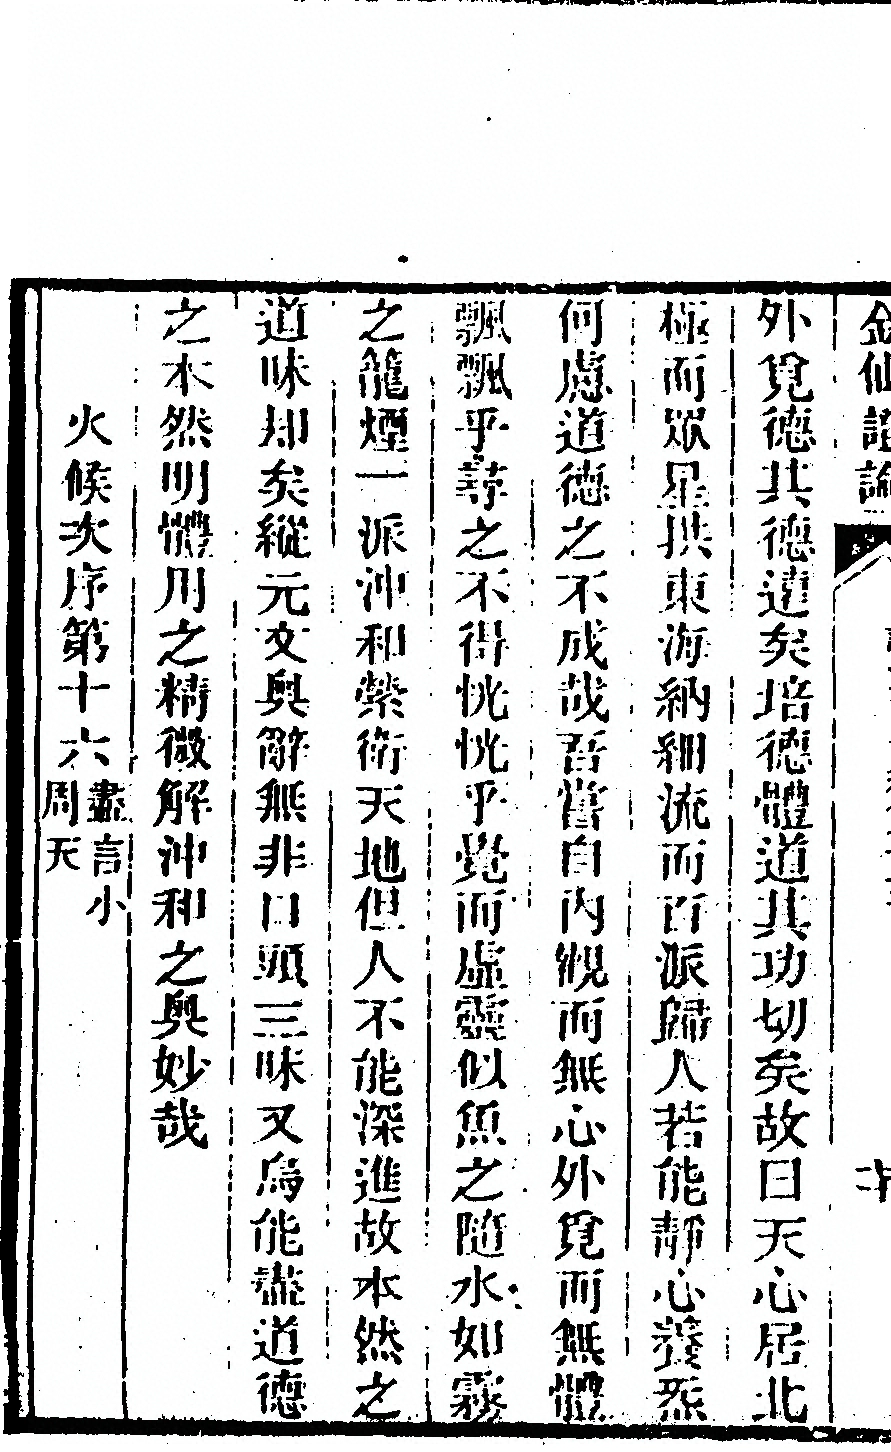 金仙證論
外覓德其德違矣培德體道其功切矣故曰天心居北
極而眾星拱東海納細流而百派歸人若能靜心養炁
何慮道德之不成哉吾嘗自內觀而無心外覓而無體
飄飄乎尋之不得恍恍乎覺而虛靈似魚之隨水如霧
之籠煙一派沖和縈衛天地但人不能深進故本然之
道味却矣縱元文奧辭無非口頭三昧又烏能盡道德
之本然明體用之精微解沖和之奧妙哉
火候次序第十六盡言小周天